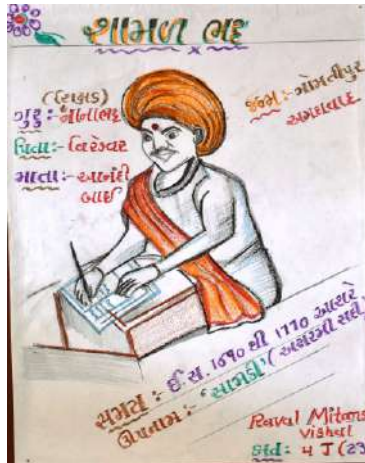 શામળ ભટ્ટ
(શિક્ષક)
ગુરુ :- નાનાભટ્ટ
પિતા:- વિરેશ્વર
માતા:- આનંદી
બાઈ
જન્મ:- ગોમતીપુર
અમદાવાદ
સમય :- ઈ.સ. ૧૬૯૦ થી ૧૭૭૦ આશરે
(અઢારમી સદી)
ઉપનામ:- 'સામકી'
Raval Mitans
Vishal
ક્લાસ: 4 J (23